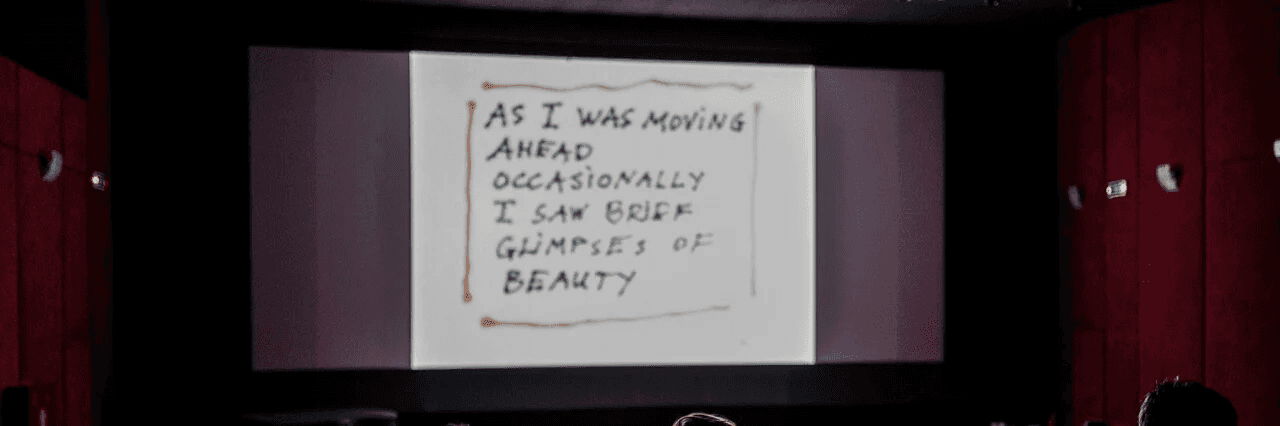 AS I WAS MOVING
AHEAD
OCCASIONALLY
I SAW BRIEF
GLIMPSES OF
BEAUTY